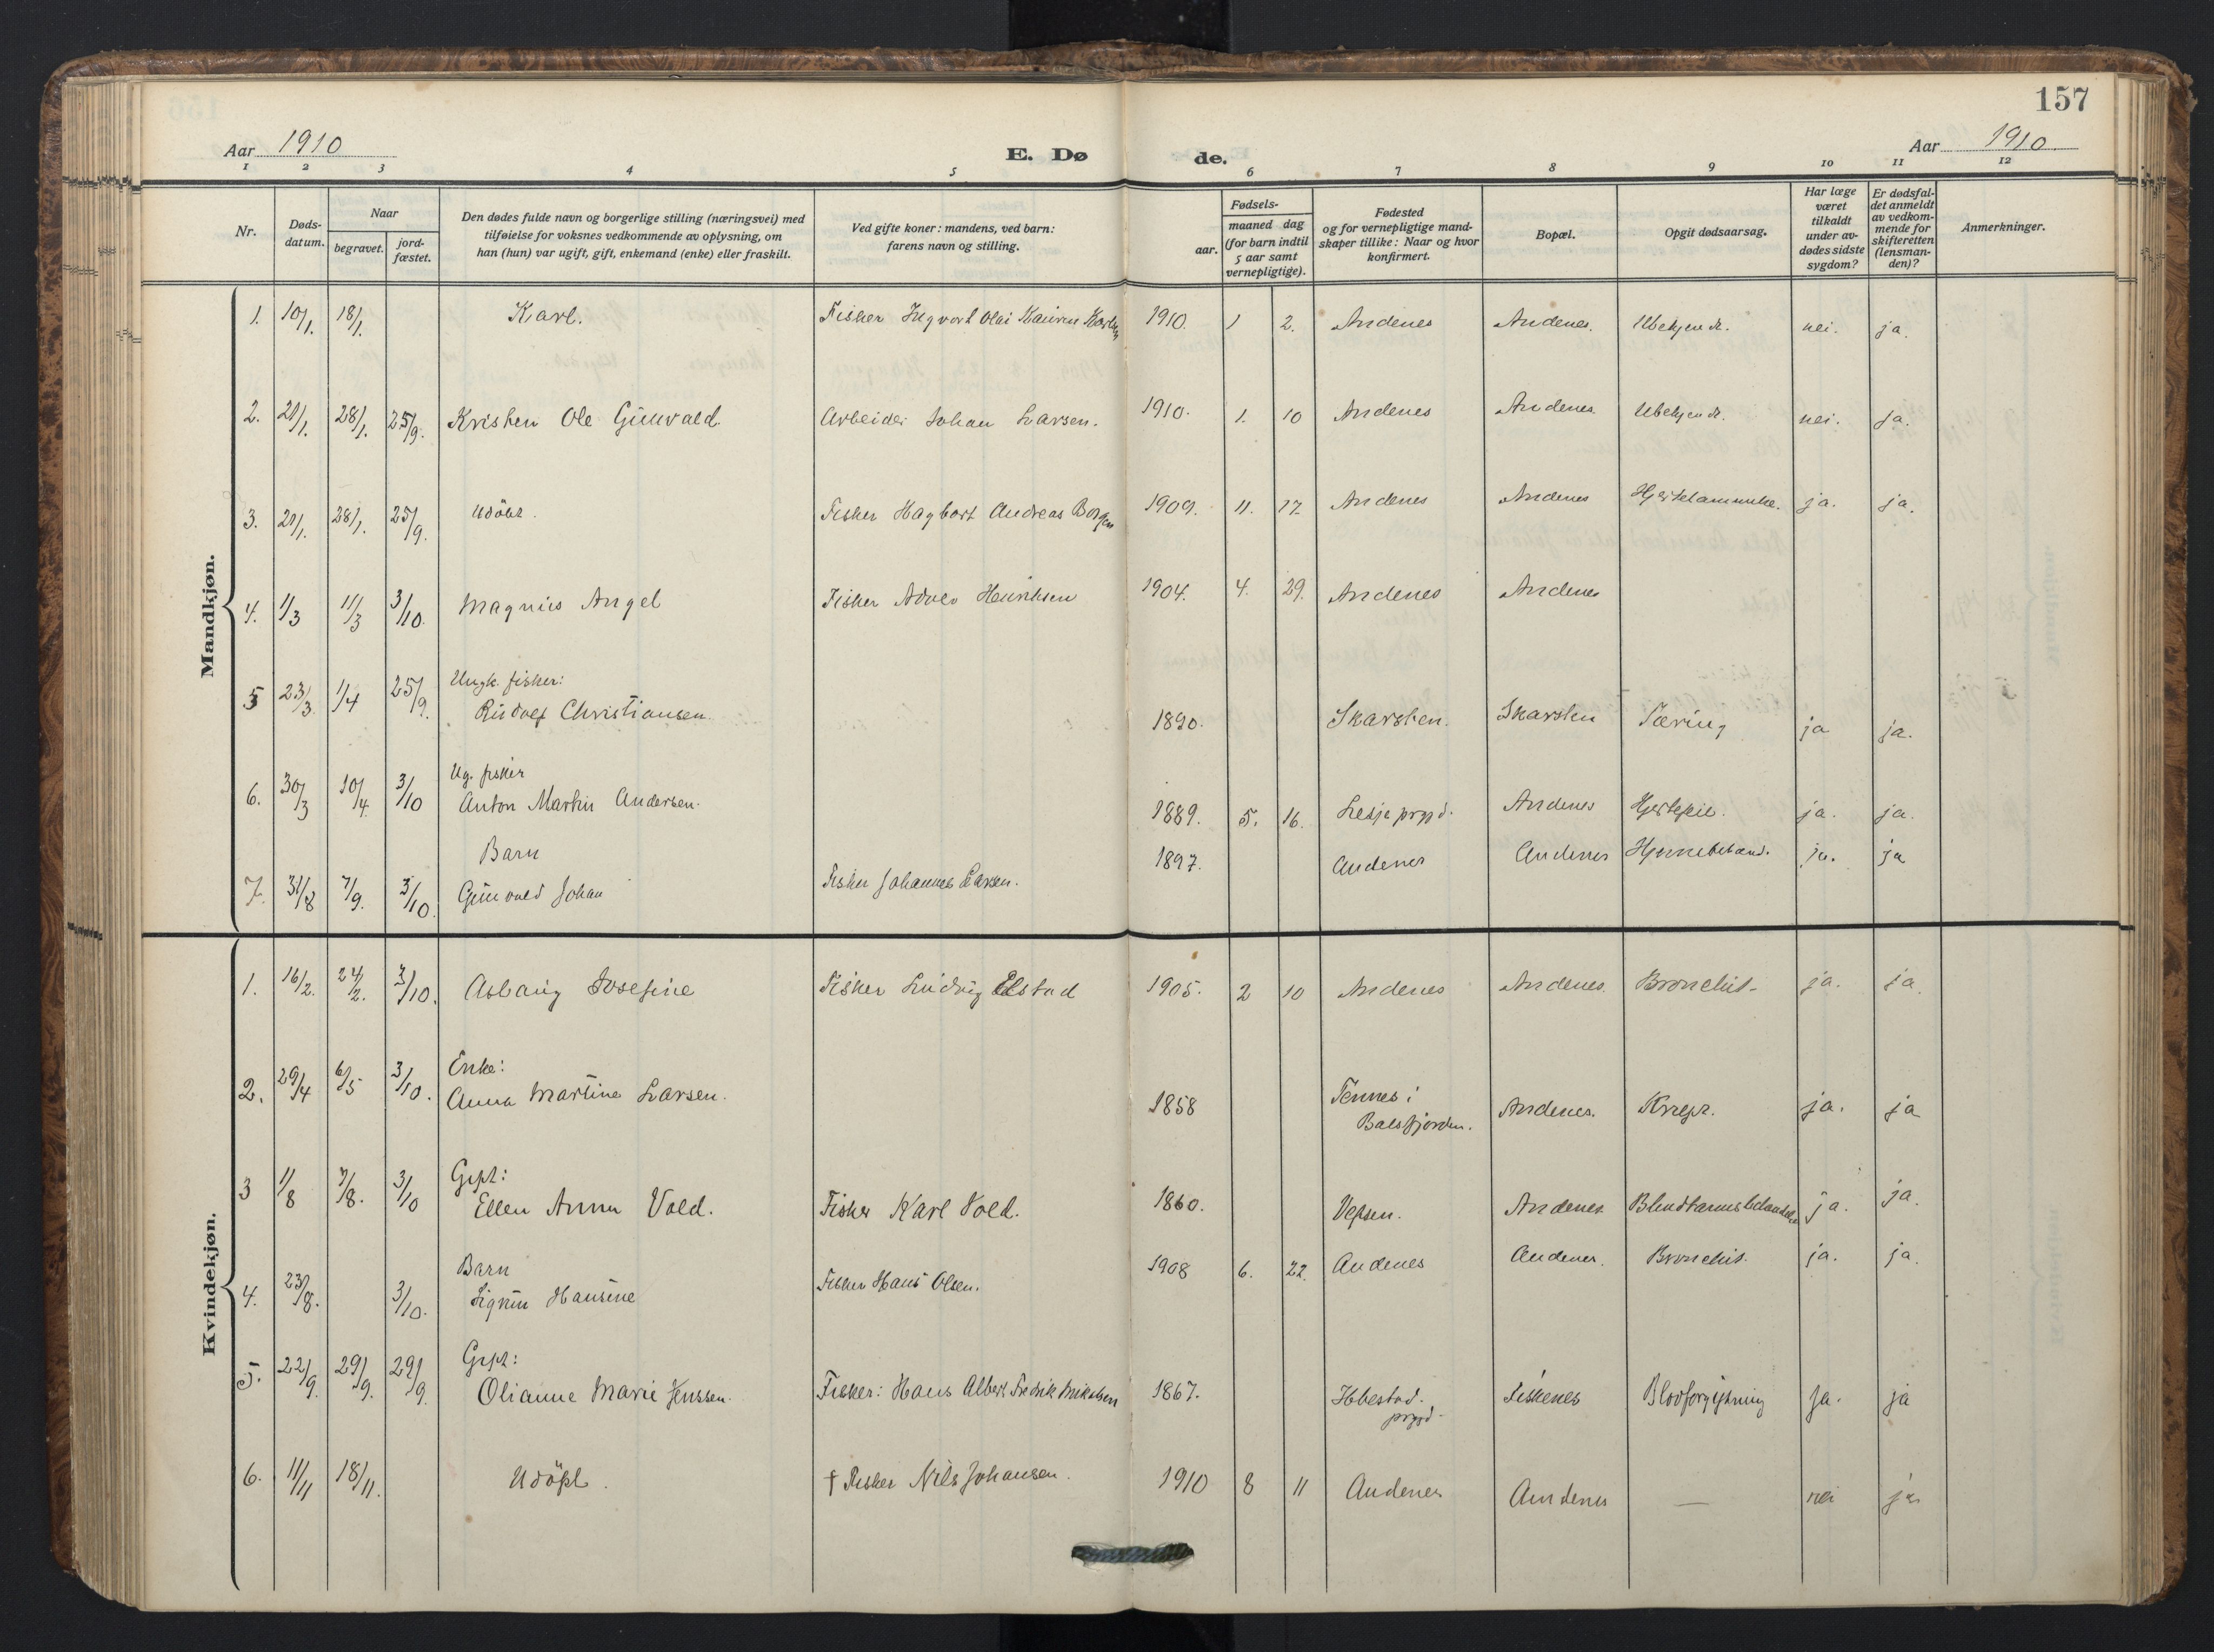 157
Aar 1910
E. Dø de.
Aar 1910.
1 2 3 4 5 6 7 8 9 10 11 12
Nr.
Døds-
datum.
Naar
begravet.
jord-
fæstet.
Den dødes fulde navn og borgerlige stilling (næringsvei) med
tilføielse for voksnes vedkommende av oplysning, om
han (hun) var ugift, gift, enkemand (enke) eller fraskilt.
Ved gifte koner: mandens, ved barn:
farens navn og stilling.
Fødsels-
aar.
maaned dag
(for barn indtil
5 aar samt
vernepligtige).
Fødested
og for vernepligtige mand-
skaper tillike: Naar og hvor
konfirmert.
Bopæl.
Opgit dødsaarsag.
Har læge
været
tilkaldt
under av-
dødes sidste
sygdom?
Er dødsfal-
det anmeldt
av vedkom-
mende for
skifteretten
(lensman-
den)?
Anmerkninger.
Mandkjøn.
1. 10/1. 18/1. Karl. Fisher Ingvart Olai 1910. 1 2. Andenes Andenes. Ubekjendt. nei. ja.
2. 21/1. 28/1. 25/9. Kristen Ole Gunvald. Arbeider Johan Larsen. 1910. 1. 10 Andenes Andenes. Ubekjendt. nei. ja.
3. 21/1. 28/1. 25/9. Udöbt. Fisker Hagbart Andreas 1909. 11. 17. Andenes Andenes ja. ja.
4. 1/3 11/3 3/10. Magnus Angel Fisker Adolf Heinriksen 1904. 4. 29. Andenes Andenes
5 23/3. 1/4 25/9. Ungk. fisker:
Rudolf Christiansen. 1890. Skarsten. Skarsten Tæring ja ja.
6. 30/3 10/4. 3/10 Ug. fisker
Anton Martin Andersen. 1889. 5. 16. Lesje prgjd. Andenes Hjertefeil. ja. ja.
Barn
7. 31/8 7/9. 3/10. Gunvald Johan Fisker Johannes Larsen. 1897. Andenes Andenes ja. ja
Kvindekjøn.
1. 16/2. 24/2. 3/10. Aslaug Josefine Fisker Ludvig Elstad 1905. 2 10 Andenes Andenes. Bronchit. ja. ja.
2. 29/4 6/5 3/10. Enke:
Anna Martine Larsen. 1858 Tennes i
Balsfjorden. Andenes. Kræft. ja. ja
3 1/8 7/8. 3/10 Gift:
Ellen Anna Vold. Fisker Karl Vold. 1860. Vefsen. Andenes ja. ja.
Barn
4. 23/8. 3/10. Sigrun Hansine Fisker Hans Olsen. 1908 6. 22. Andenes Andenes. Bronchit. ja. ja
5. 22/9. 29/9. 29/9. Gift:
Olianne Marie Jenssen. Fisker: Hans Albert Fredrik Mikalsen 1867. Ibbestad.
prgjd. Fiskenes Blodforgiftning ja. ja
6. 11/11 18/11. Udöpt. † Fisker Nils Johansen. 1910 8 11 Andenes Andenes — nei ja